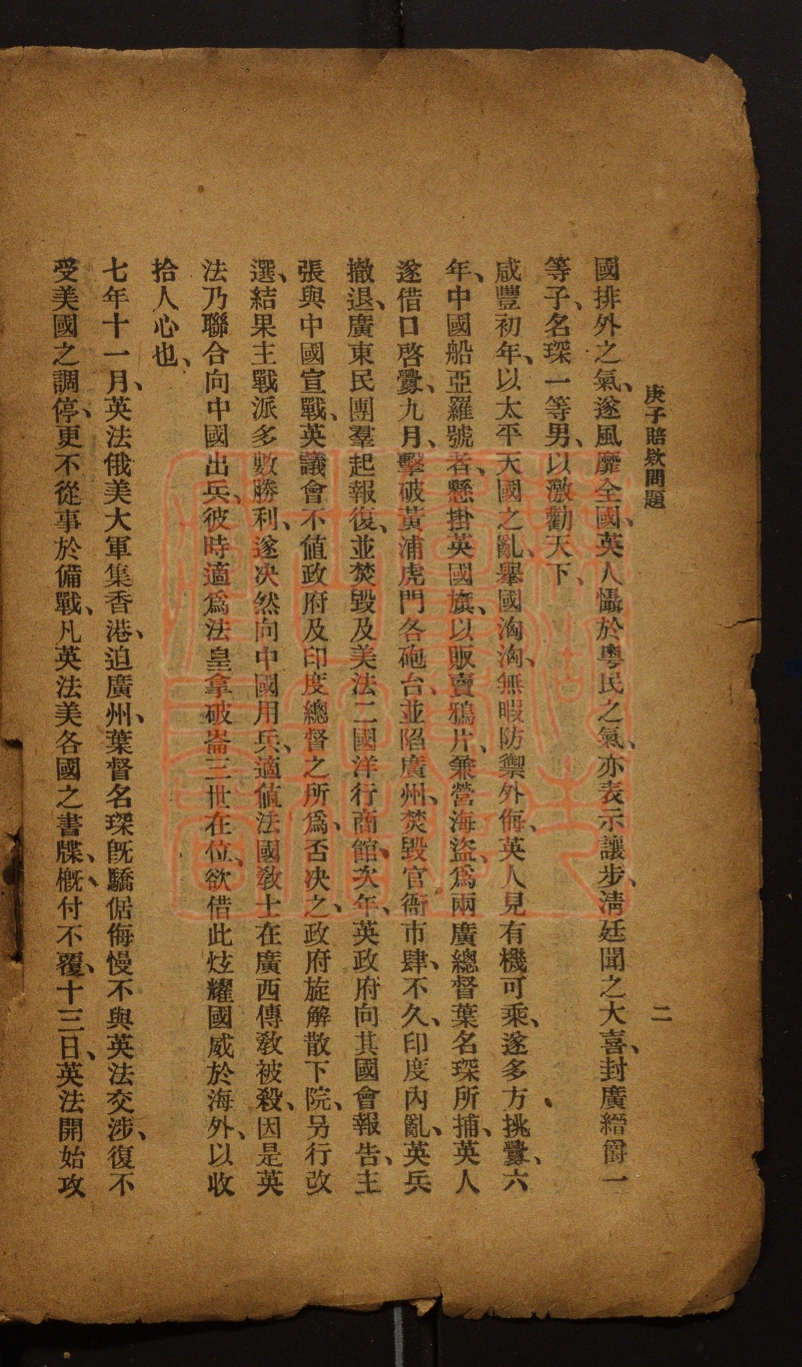 庚子賠款問題
二
國排外之氣、遂風靡全國、英人懾於粵民之氣、亦表示讓步、淸廷聞之大喜、封廣縉爵一
等子、名琛一等男、以激勸天下、
咸豐初年、以太平天國之亂、舉國洶洶、無暇防禦外侮、英人見有機可乘、遂多方挑釁、六
年、中國船亞羅號者、懸掛英國旗、以販賣鴉片、兼營海盜、爲兩廣總督葉名琛所捕、英人
遂借口啓釁、九月、擊破黃浦虎門各砲台、並陷廣州、焚毀官衙市肆、不久、印度內亂、英兵
撤退、廣東民團羣起報復、並焚毀及美法二國洋行商館、次年、英政府向其國會報告、主
張與中國宣戰、英議會不値政府及印度總督之所爲、否决之、政府旋解散下院、另行改
選、結果主戰派多數勝利、遂决然向中國用兵、適値法國敎士在廣西傳敎被殺、因是英
法乃聯合向中國出兵、彼時適爲法皇拿破崙三世在位、欲借此炫耀國威於海外、以收
拾人心也、
七年十一月、英法俄美大軍集香港、迫廣州、葉督名琛旣驕倨侮慢不與英法交涉、復不
受美國之調停、更不從事於備戰、凡英法美各國之書牒、槪付不覆、十三日、英法開始攻